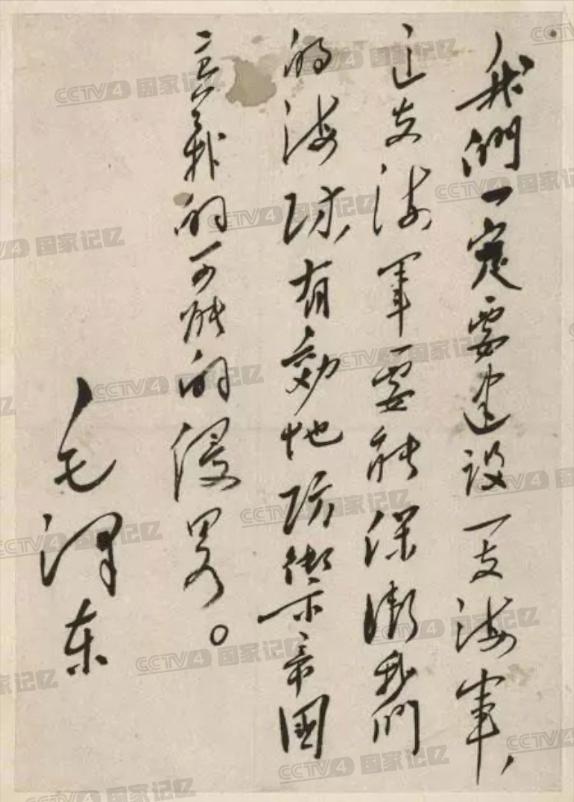 我們一定要建設一支海軍,
这支海軍要能保衛我們
的海防,有効地防禦帝國
主義的可能的侵畧。
毛泽东
CCTV4 国家记忆